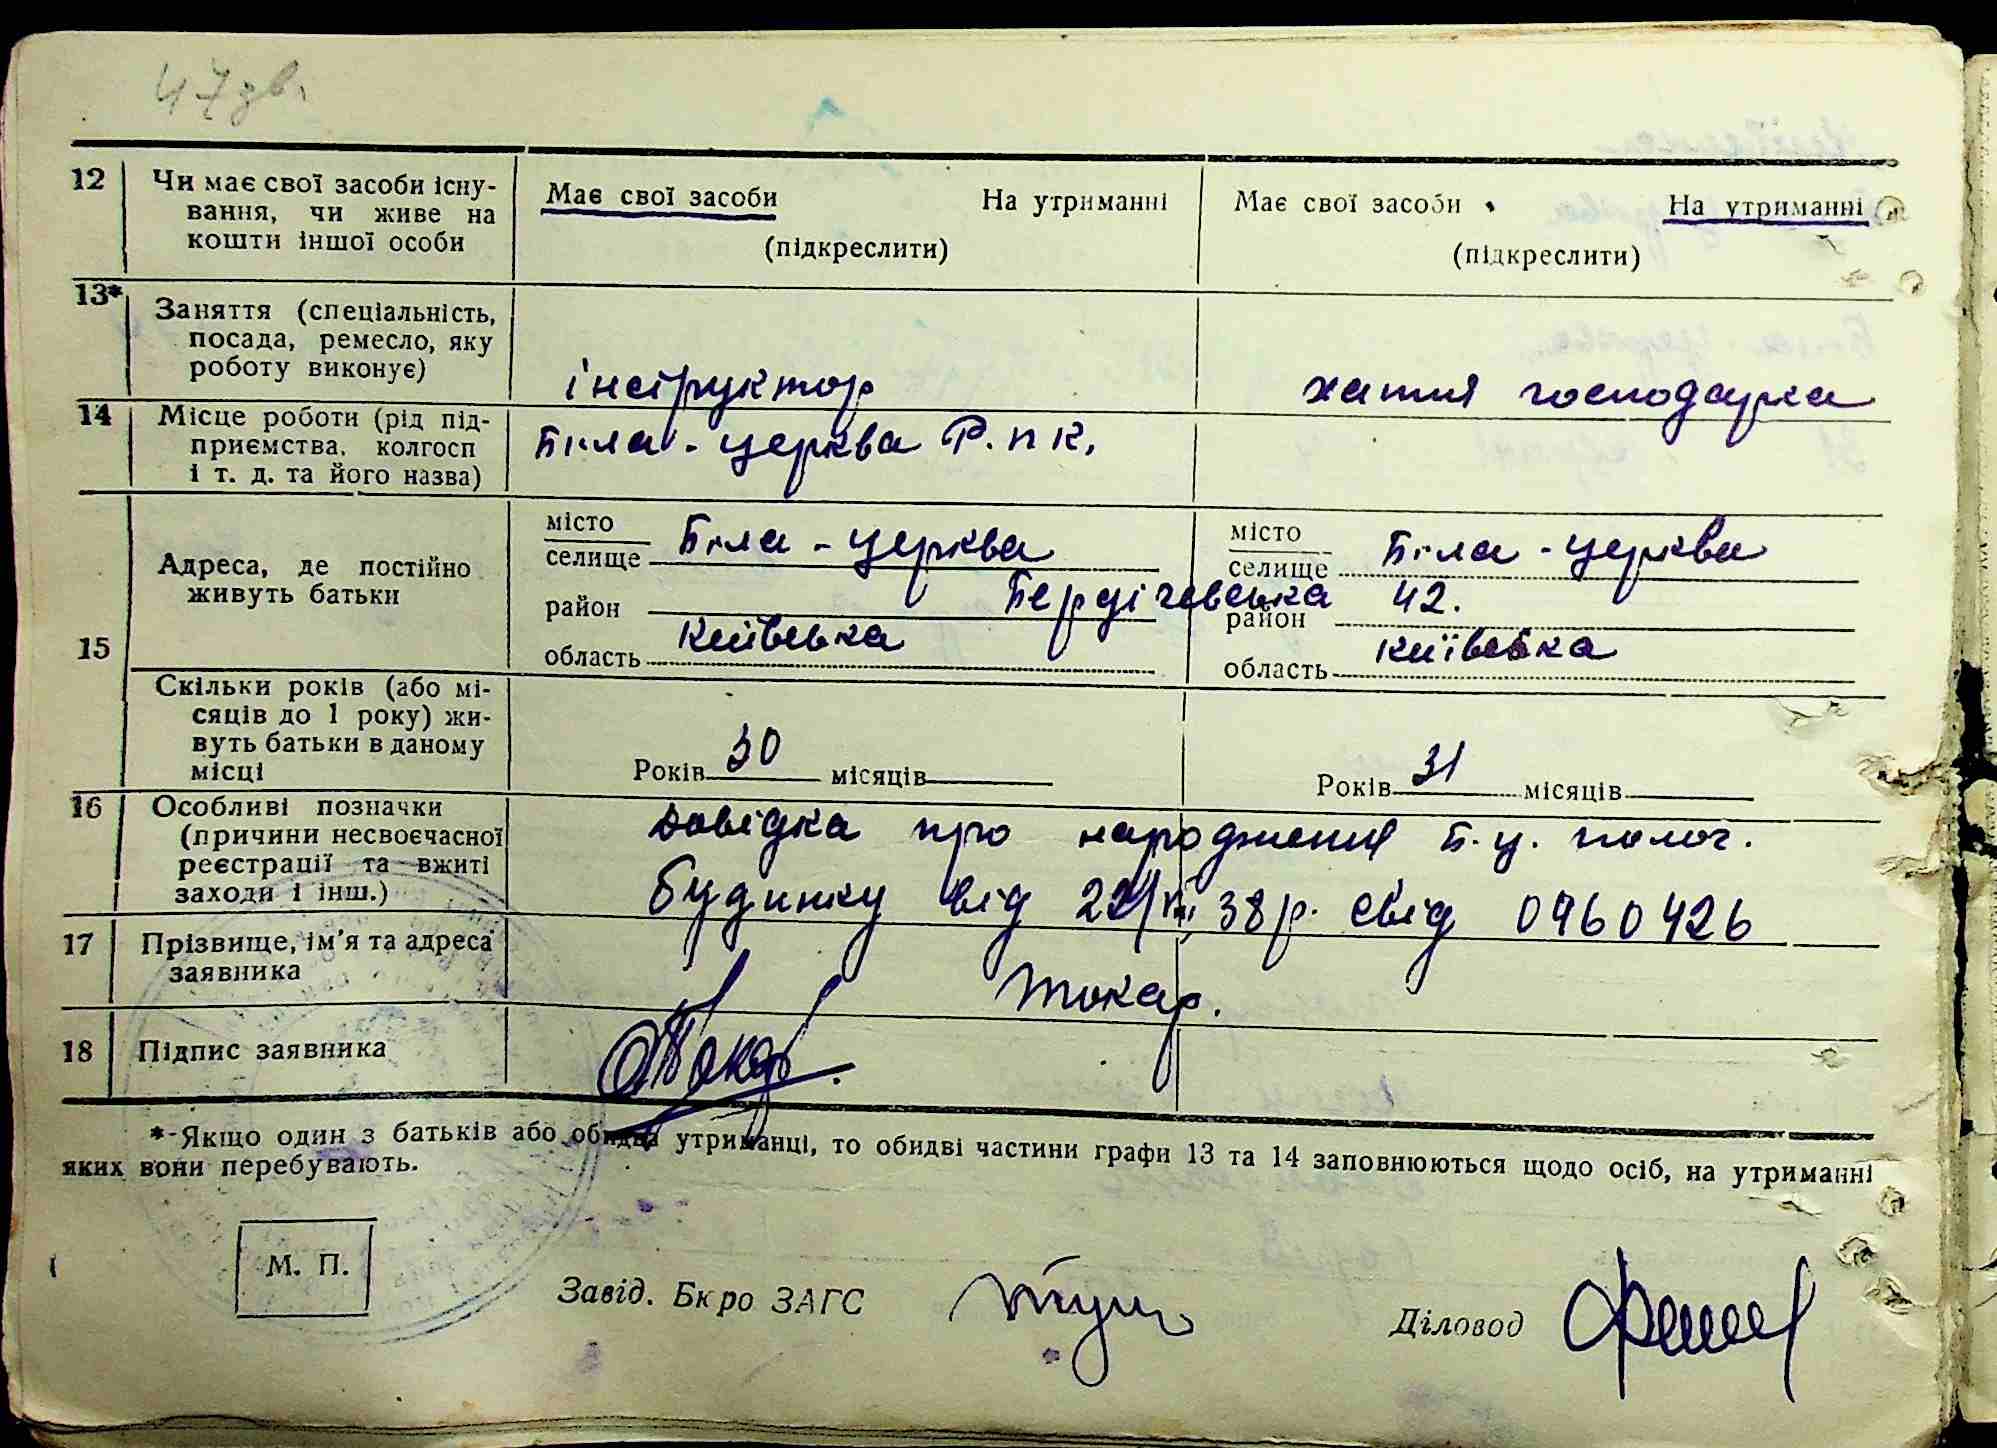 47 зв.
12 Чи має свої засоби існу-
вання, чи живе на
кошти іншої особи
Має свої засоби На утриманні
(підкреслити)
Має свої засоби На утриманні
(підкреслити)
13* Заняття (спеціальність,
посада, ремесло, яку
роботу виконує)
інструктор
хатня господарка
14 Місце роботи (рід під-
приємства, колгосп
і т. д. та його назва)
Біла-церква Р.п к.
15 Адреса, де постійно
живуть батьки
місто
селище Біла-церква
район
область київська
місто
селище Біла-церква
Бердічевська 42.
район
область київська
Скільки років (або мі-
сяців до 1 року) жи-
вуть батьки в даному
місці
Років 30 місяців
Років 31 місяців
16 Особливі позначки
(причини несвоєчасної
реєстрації та вжиті
заходи і інш.)
Довідка про народження Б.ц. полог.
будинку від 38 р. свід 0960426
17 Прізвище, ім'я та адреса
заявника
Токар.
18 Підпис заявника
Токар
*-Якщо один з батьків або обидва утриманці, то обидві частини графи 13 та 14 заповнюються щодо осіб, на утриманні
яких вони перебувають.
М. П.
Завід. Бюро ЗАГС
Діловод